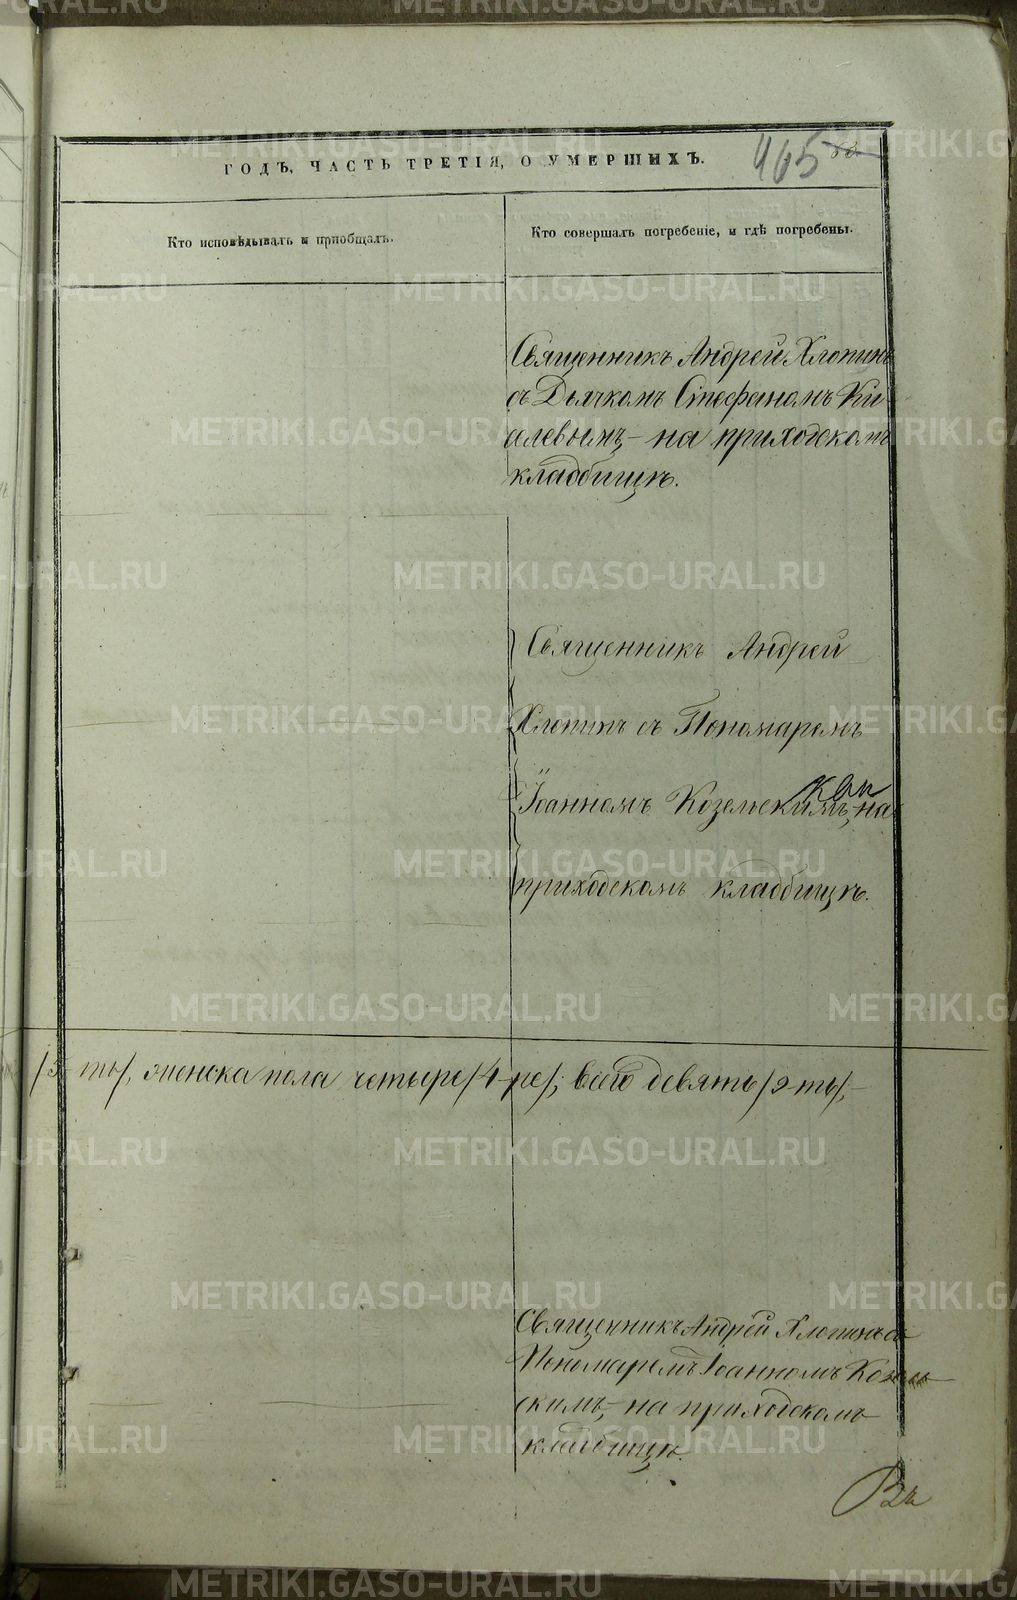 METRIKI.GASO-URAL.RU
465
ГОДЪ, ЧАСТЬ ТРЕТІЯ, О УМЕРШИХЪ.
Кто исповѣдывалъ и пріобщалъ.
Кто совершалъ погребеніе, и гдѣ погребены.
Священникъ Андрей Хлопинъ
съ Дьячкомъ Стефаномъ Ки-
алевымъ, на приходскомъ
кладбищѣ.
Священникъ Андрей
Хлопинъ съ Пономаремъ
Іоанномъ Козельскимъ, на
приходскомъ кладбищѣ.
/5-ть/, женска пола четыре /4-ре/, всего девять /9-ть/,
Священникъ Андрей Хлопинъ съ
Пономаремъ Іоанномъ Козель-
скимъ, на приходскомъ
кладбищѣ.